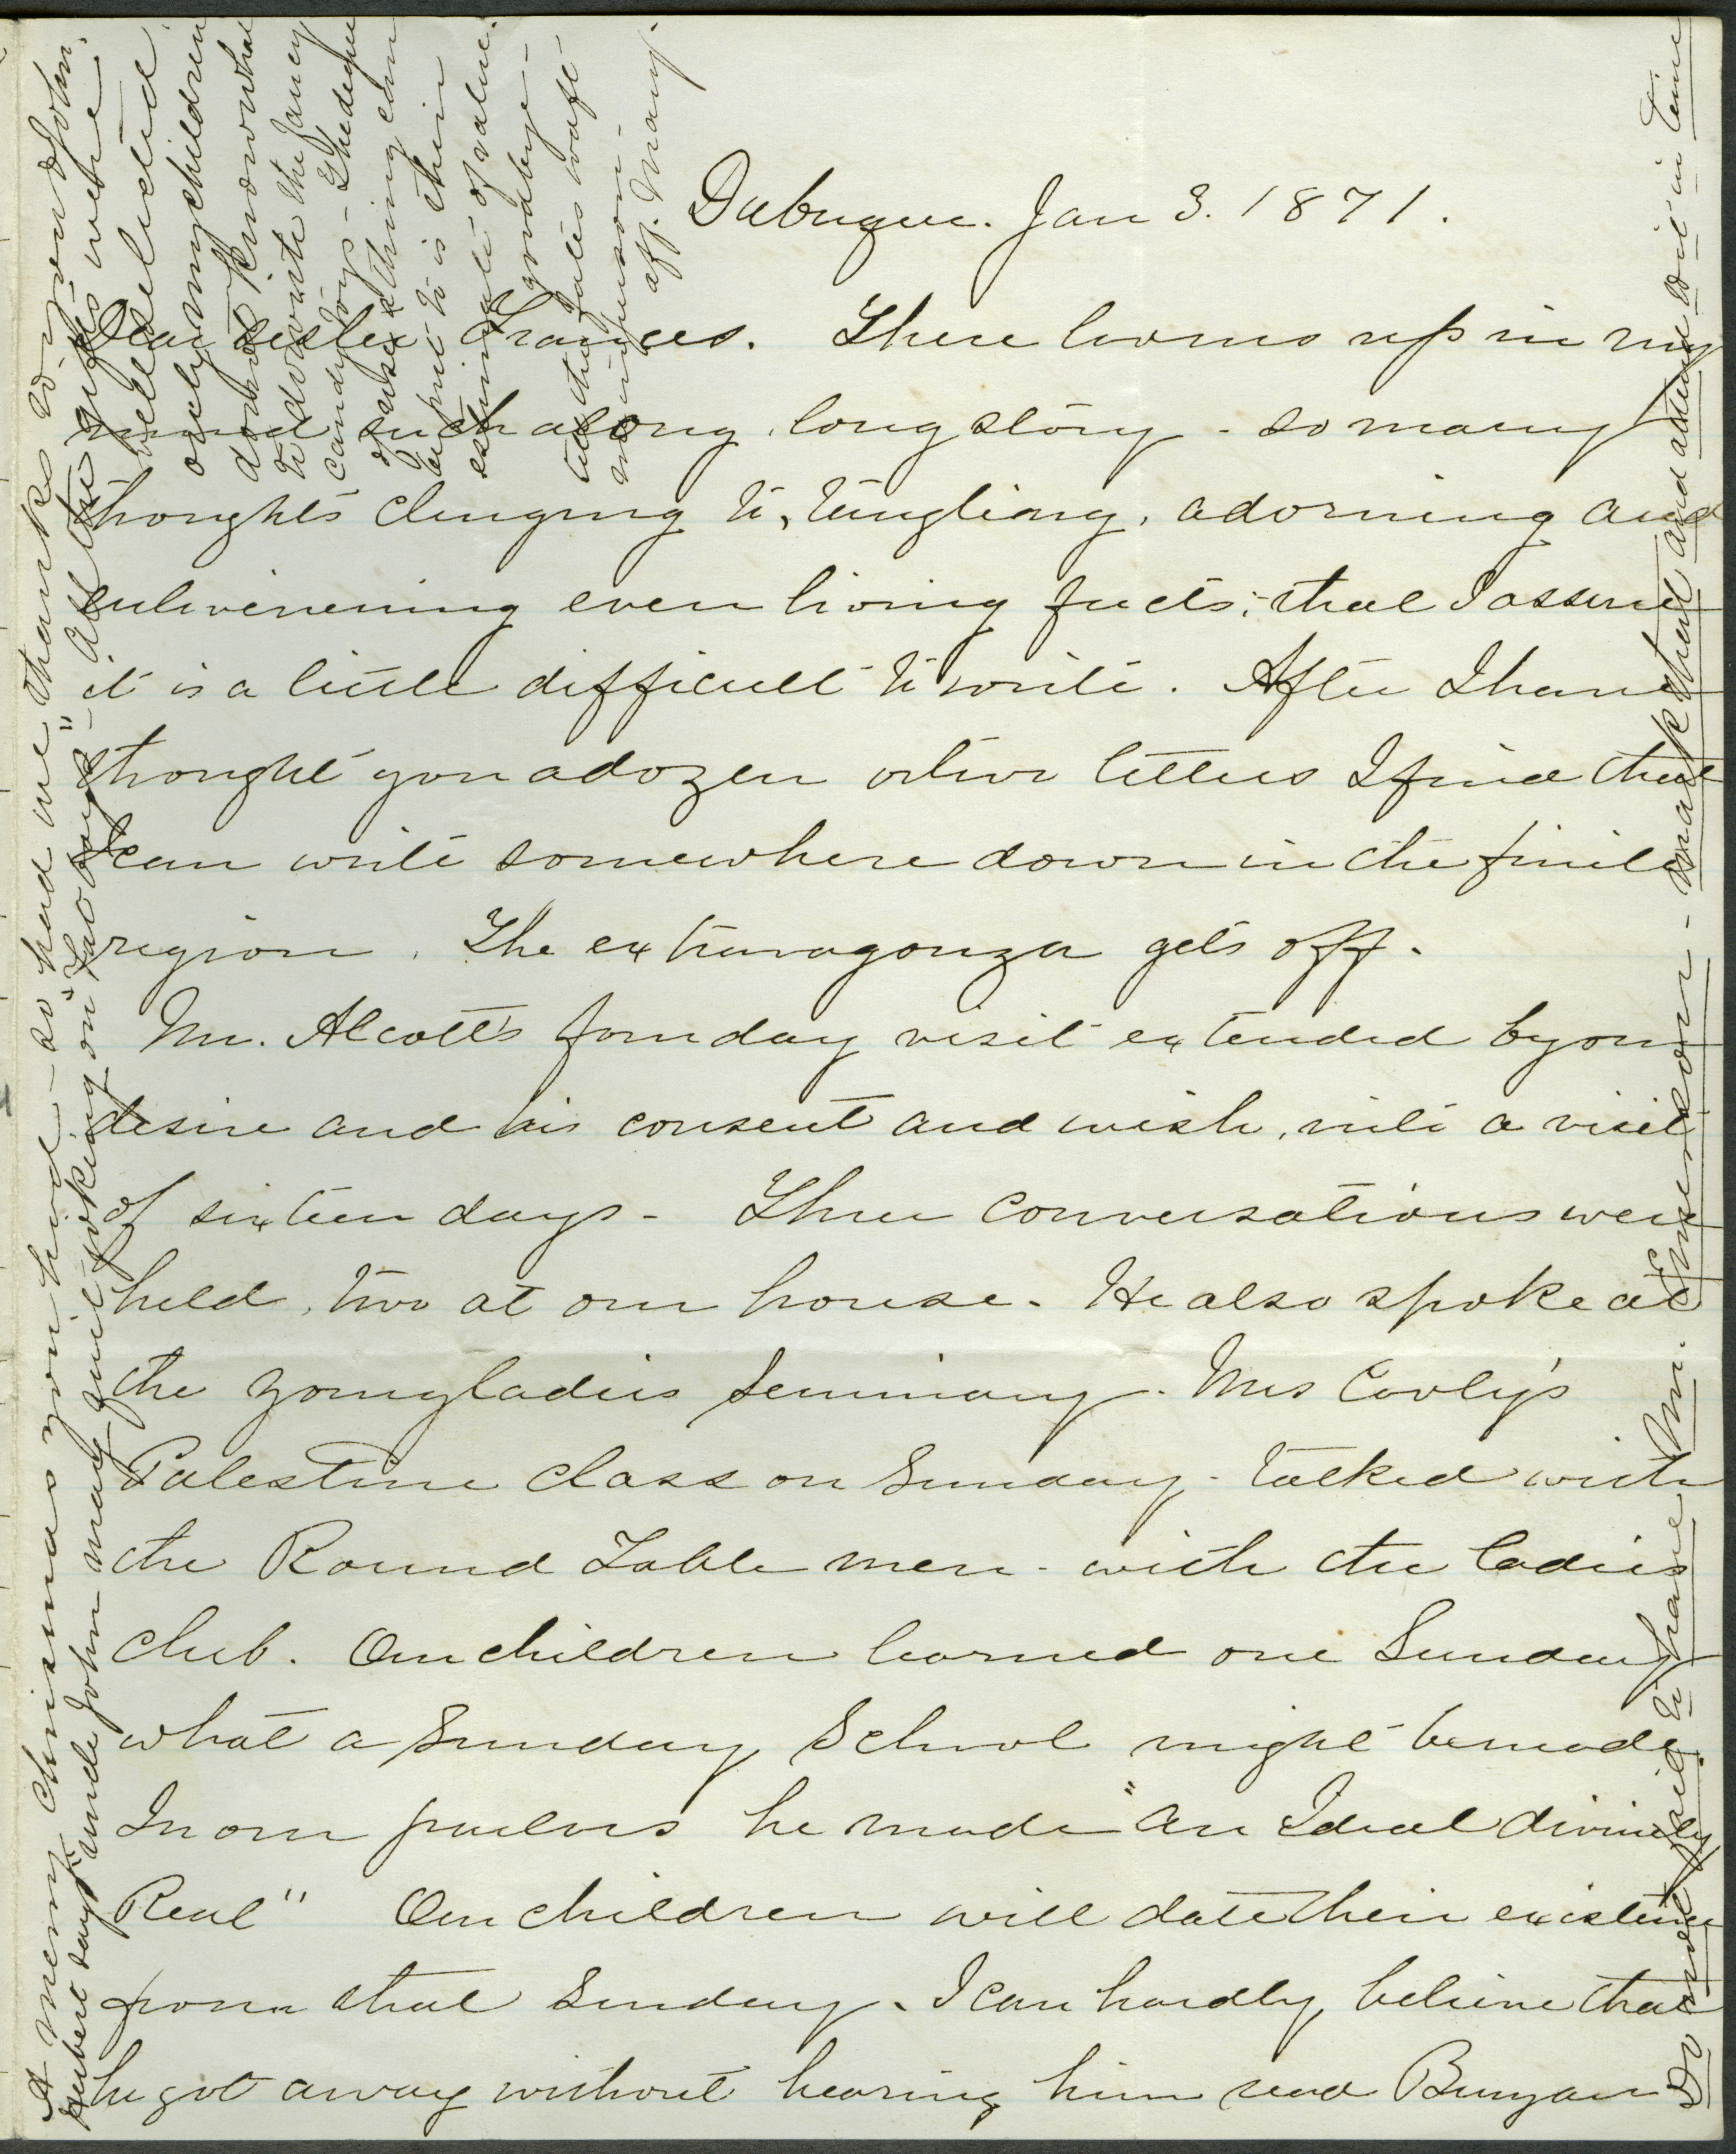 Dubuque. Jan 3. 1871.
Dear Sister Frances. There looms up in my
mind such a long, long story - so many
thoughts clinging to, tingling, adorning and
enlivening even living facts; that I assure
it is a little difficult to write. After I have
thought you a dozen letters I find that
I can write somewhere down in the finite
region. The extravagonza gets off.
Mr. Alcott's four day visit extended by our
desire and his consent and wish, into a visit
of sixteen days - Three conversations were
held, two at our house. He also spoke at
the young ladies Seminary. Mrs Cooly's
Palestine class on Sunday - talked with
the Round Table men - with the ladies
club. Our children learned one Sunday
what a Sunday School might be made.
In our parlors he made "an Ideal divinely
Real" Our children will date their existence
from that Sunday. I can hardly believe that
he got away without hearing him read Bunyan
A merry Christmas you had - so had we thanks to you and John.
Hubert says "uncle John may quit joking on "fat boys" - All the gifts were
well selected
only my children
do not know what
to do with the fancy
candy toys - The degree
of sense a thing can
be put to is their
estimate of value.
goodbye -
till the fates waft
me in person -
aff. Mary.
Do not fail to have Mr. Emerson - mark that and attend to it in time